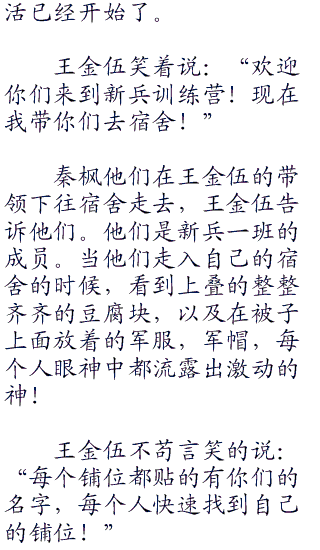 活已经开始了。
王金伍笑着说：“欢迎
你们来到新兵训练营！现在
我带你们去宿舍！”
秦枫他们在王金伍的带
领下往宿舍走去，王金伍告
诉他们。他们是新兵一班的
成员。当他们走入自己的宿
舍的时候，看到上叠的整整
齐齐的豆腐块，以及在被子
上面放着的军服，军帽，每
个人眼神中都流露出激动的
神！
王金伍不苟言笑的说：
“每个铺位都贴的有你们的
名字，每个人快速找到自己
的铺位！”